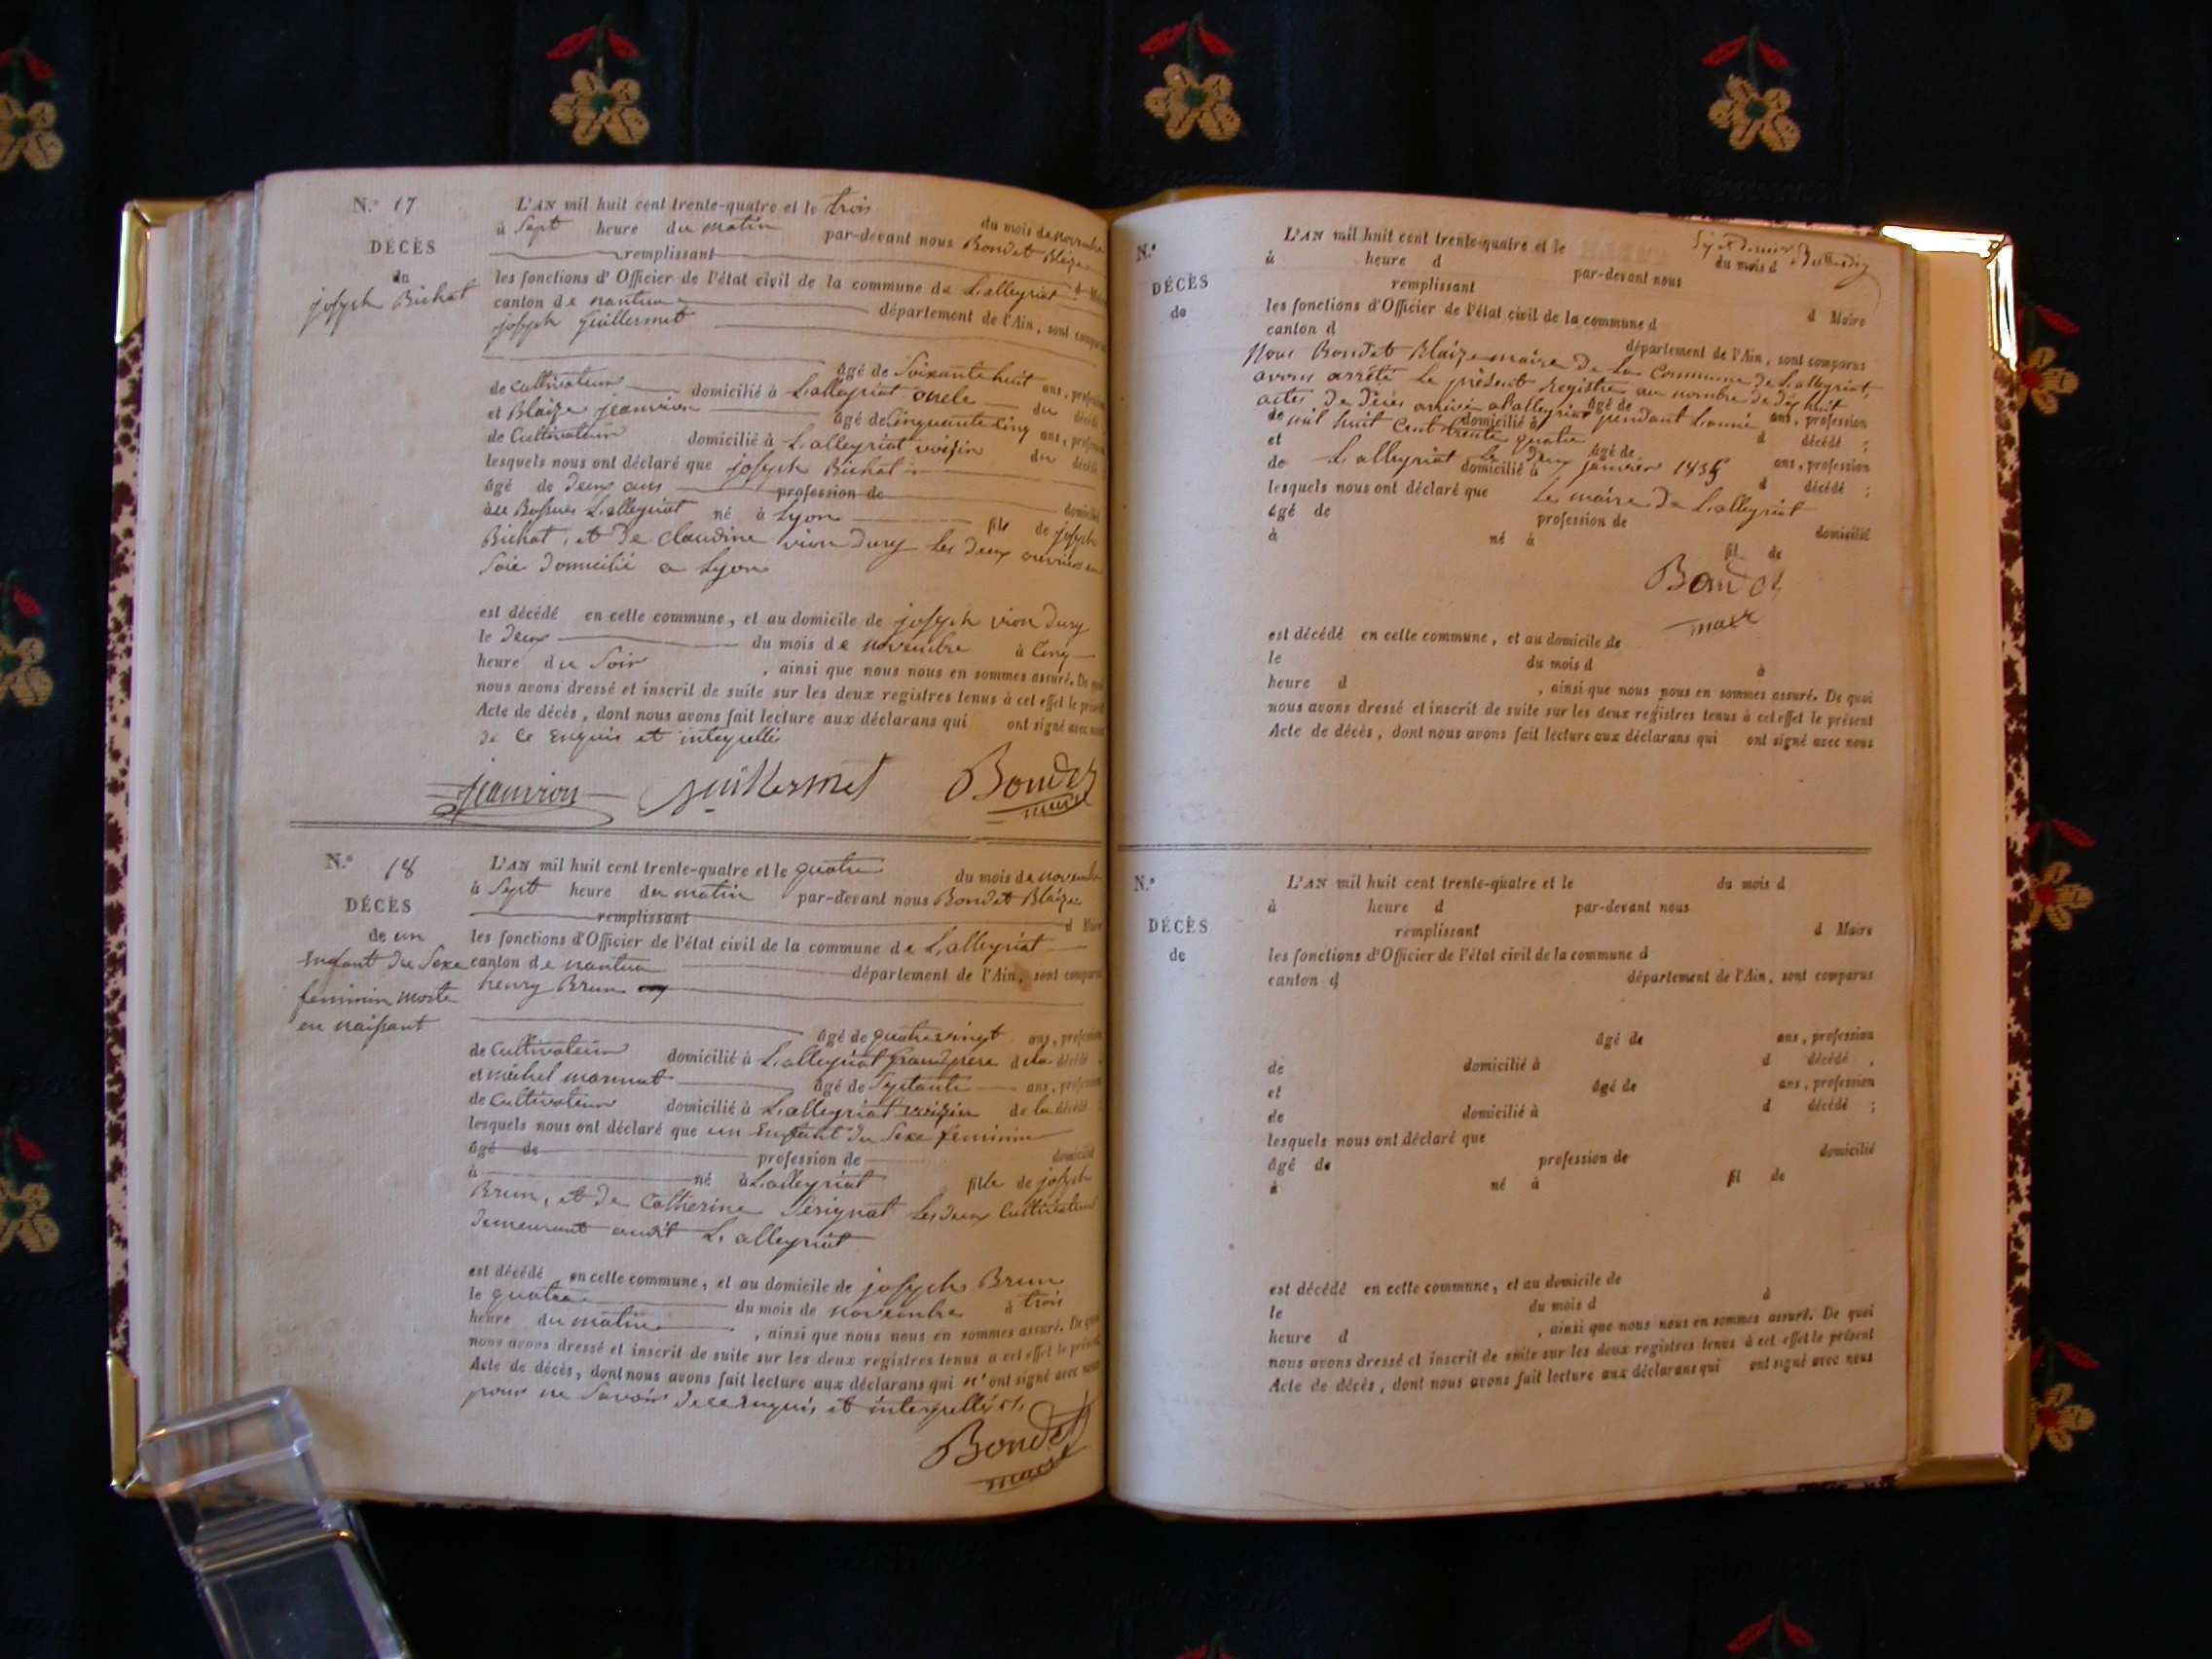 N.° 17
DÉCÈS
de
joseph Bichat
L'AN mil huit cent trente-quatre et le trois du mois de novembre
à Sept heure du matin par-devant nous Bondet Blaize
remplissant d Maire
les fonctions d'Officier de l'état civil de la commune de Lalleyriat
canton de nantua département de l'Ain, sont comparus
joseph Guillermet
âgé de Soixante huit ans, profession
de Cultivateur domicilié à Lalleyriat oncle du décédé
et Blaize jeanvion âgé de Cinquante Cinq ans, profession
de Cultivateur domicilié à Lalleyriat voisin du décédé
lesquels nous ont déclaré que joseph Bichat
âgé de deux ans profession de domicilié
au Lalleyriat né à Lyon fils de joseph
Bichat, et de claudine vion dury les deux ouvriers en
Soie domicilié a Lyon
est décédé en cette commune, et au domicile de joseph vion dury
le deux du mois de novembre à Cinq
heure du Soir, ainsi que nous nous en sommes assuré. De quoi
nous avons dressé et inscrit de suite sur les deux registres tenus à cet effet le présent
Acte de décès, dont nous avons fait lecture aux déclarans qui ont signé avec nous
de ce Enquis et interpellés
jeanvion Guillermet Bondet
maire
N.° 18
DÉCÈS
de un
enfant du Sexe
feminin morte
en naissant
L'AN mil huit cent trente-quatre et le quatre du mois de novembre
à Sept heure du matin par-devant nous Bondet Blaize
remplissant d Maire
les fonctions d'Officier de l'état civil de la commune de Lalleyriat
canton de nantua département de l'Ain, sont comparus
henry Brun
âgé de quatrevingt ans, profession
de Cultivateur domicilié à Lalleyriat grandpere de la décédé
et michel marmet âgé de Septante ans, profession
de Cultivateur domicilié à Lalleyriat voizin de la décédé
lesquels nous ont déclaré que un Enfant du Sexe feminin
âgé de profession de domicilié
à né à Lalleyriat fille de joseph
Brun, et de Catherine Sérignat les deux Cultivateurs
demeurant audit Lalleyriat
est décédé en cette commune, et au domicile de joseph Brun
le quatre du mois de novembre à trois
heure du matin, ainsi que nous nous en sommes assuré. De quoi
nous avons dressé et inscrit de suite sur les deux registres tenus à cet effet le présent
Acte de décès, dont nous avons fait lecture aux déclarans qui n'ont signé avec nous
pour ne Savoir de ce enquis et interpellés
Bondet
maire
N.°
DÉCÈS
de
L'AN mil huit cent trente-quatre et le du mois d
à heure d par-devant nous
remplissant d Maire
les fonctions d'Officier de l'état civil de la commune d
canton d département de l'Ain, sont comparus
Nous Bondet Blaize maire de la Commune de Lalleyriat,
avons arrété le présent Registre au nombre de dix huit
actes de décès arrivés a Lalleyriat pendant Lanné
mil huit Cent trente quatre
Lalleyriat le deux janvier 1835
Le maire de Lalleyriat
âgé de ans, profession
de domicilié à d décédé ;
et âgé de ans, profession
de domicilié à d décédé ;
lesquels nous ont déclaré que
âgé de profession de domicilié
à né à fil de
Bondet
maire
est décédé en cette commune, et au domicile de
le du mois d à
heure d , ainsi que nous nous en sommes assuré. De quoi
nous avons dressé et inscrit de suite sur les deux registres tenus à cet effet le présent
Acte de décès, dont nous avons fait lecture aux déclarans qui ont signé avec nous
N.°
DÉCÈS
de
L'AN mil huit cent trente-quatre et le du mois d
à heure d par-devant nous
remplissant d Maire
les fonctions d'Officier de l'état civil de la commune d
canton d département de l'Ain, sont comparus
âgé de ans, profession
de domicilié à d décédé ,
et âgé de ans, profession
de domicilié à d décédé ;
lesquels nous ont déclaré que
âgé de profession de domicilié
à né à fil de
est décédé en cette commune, et au domicile de
le du mois d à
heure d , ainsi que nous nous en sommes assuré. De quoi
nous avons dressé et inscrit de suite sur les deux registres tenus à cet effet le présent
Acte de décès, dont nous avons fait lecture aux déclarans qui ont signé avec nous